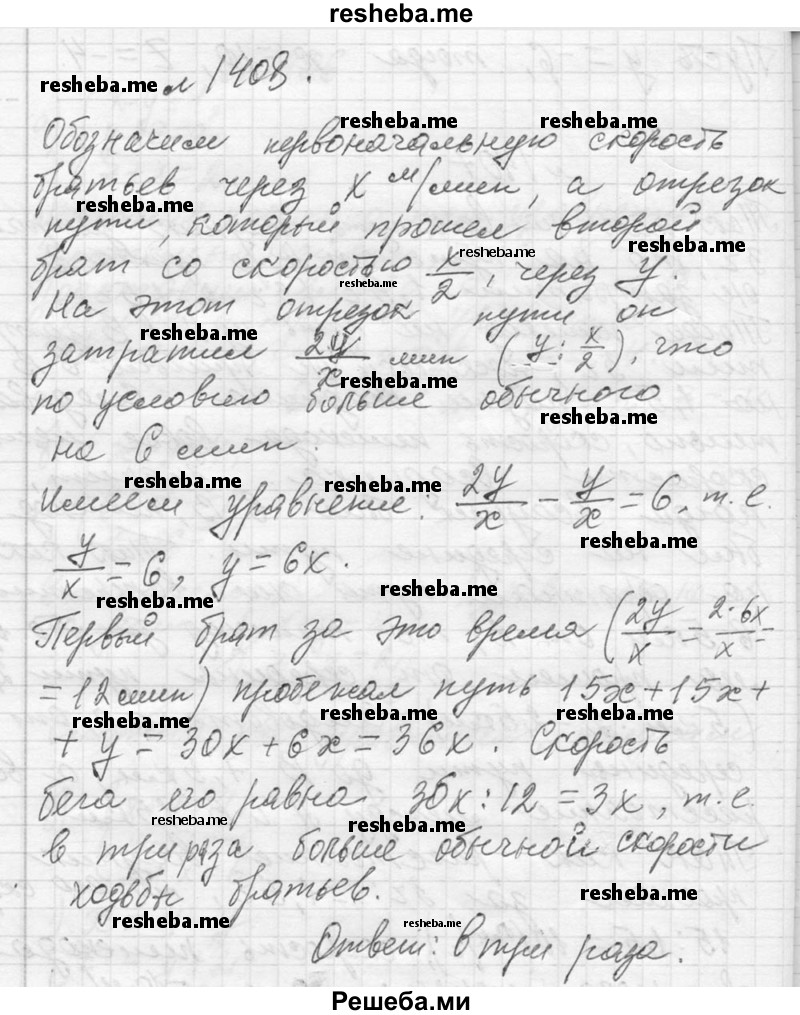 resheba.me
resheba.me
№ 1408.
resheba.me resheba.me
Обозначим первоначальную скорость
братьев через x м/мин, а отрезок
resheba.me
пути, который прошел второй
resheba.me
брат со скоростью x/2, через y.
resheba.me
resheba.me
На этот отрезок пути он
resheba.me
затратил 2y/x мин (y : x/2), что
resheba.me
по условию больше обычного
resheba.me
на 6 мин.
resheba.me resheba.me
Имеем уравнение: 2y/x - y/x = 6, т.е.
resheba.me
y/x = 6, y = 6x.
resheba.me
resheba.me
Первый брат за это время (2y/x = 2·6x/x =
= 12 мин) пробежал путь 15x + 15x +
resheba.me resheba.me resheba.me
+ y = 30x + 6x = 36x. Скорость
бега его равна 36x : 12 = 3x, т.е.
resheba.me resheba.me
в три раза больше обычной скорости
ходьбы братьев.
resheba.me
resheba.me resheba.me
Ответ: в три раза.
Решеба.ми